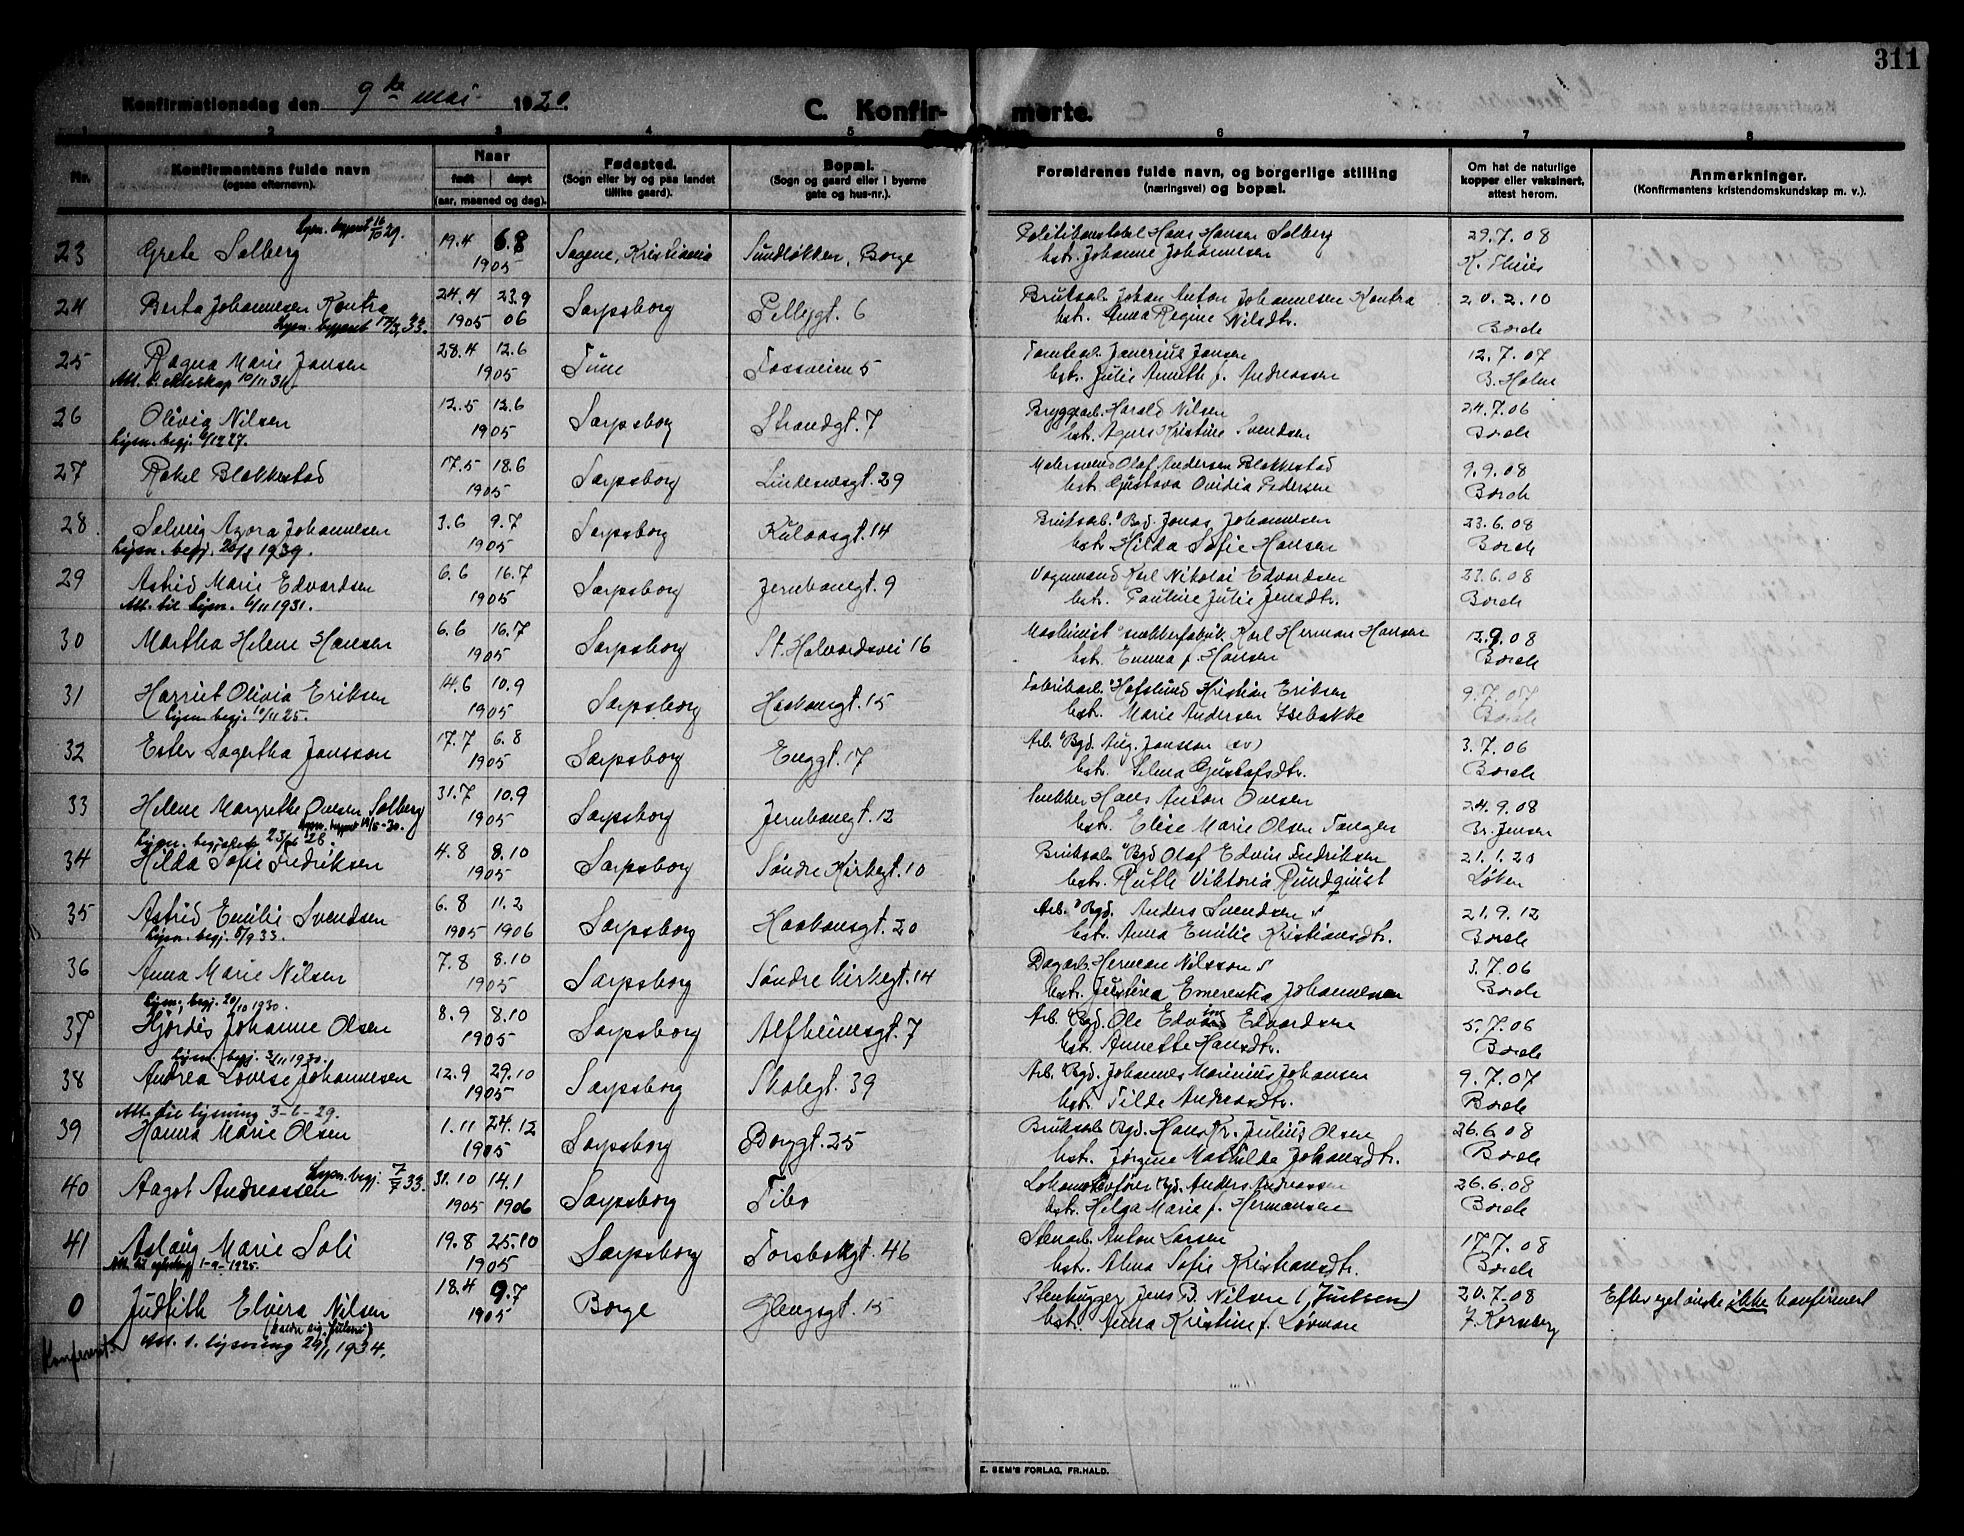 311
Konfirmationsdag den 9de mai 1920
C. Konfirmerte.
1 2 3 4 5 6 7 8
Nr.
Konfirmantens fulde navn
(ogsaa efternavn).
Naar
født døpt
(aar, maaned og dag).
Fødested.
(Sogn eller by og paa landet
tillike gaard).
Bopæl.
(Sogn og gaard eller i byerne
gate og hus-nr.).
Forældrenes fulde navn, og borgerlige stilling
(næringsvei) og bopæl.
Om hat de naturlige
kopper eller vaksinert,
attest herom.
Anmerkninger.
(Konfirmantens kristendomskundskap m. v.).
Lysn. begjært 16/10 29.
23 Grete Solberg 19.4 6.8 Sagene, Kristiania Sundløkken, Borge Politikonstabel Hans Hansen Solberg 29.7.08
1905 hstr. Johanne Johannesen K. Thiis
24 Berta Johannesen Kontra 24.4 23.9 Sarpsborg Pellygt. 6 Bruksarb. Johan Anton Johannesen Kontra 20.2.10
Lysn. begjært 17/3 33. 1905 06 hstr. Anna Regine Nilsdtr. Borch
25 Ragna Marie Jansen 28.4 12.6 Tune Fossveien 5 Tomtearb. Janerius Jansen 12.7.07
Att. t. ekteskap 10/11 34. 1905 hstr. Julie Anneth f. Andreassen B. Holm
26 Olivia Nilsen 12.5 12.6 Sarpsborg Strandgt. 7 Bryggearb. Harald Nilsen 24.7.06
Lysn. begj. 6/12 27. 1905 hstr. Agnes Kristine Svendsen Borch
27 Rakel Blakkestad 17.5 18.6 Sarpsborg Lindesnesgt. 29 Malersvend Olaf Andersen Blakkestad 9.9.08
1905 hstr. Gustava Ovidia Pedersen Borch
28 Solveig Agora Johannesen 3.6 9.7 Sarpsborg Kulaasgt. 14 Bruksarb. Bgd. Jonas Johannesen 23.6.08
Lysn. begj. 26/8 1939. 1905 hstr. Hilda Sofie Hansen Borch
29 Astrid Marie Edvardsen 6.6 16.7 Sarpsborg Jernbanegt. 9 Vognmand Karl Nikolai Edvardsen 23.6.08
Att. til lysn. 6/11 1931. 1905 hstr. Pauline Julie Jensdtr. Borch
30 Martha Helene Hansen 6.6 16.7 Sarpsborg St. Halvardsvei 16 Maskinist snekkerfabrik. Karl Herman Hansen 12.9.08
1905 hstr. Emma f. Hansen Borch
31 Harriet Olivia Eriksen 14.6 10.9 Sarpsborg Haakonsgt. 15 Fabrikarb. Hafslund Kristian Eriksen 9.7.07
Lysn. begj. 10/11 25. 1905 hstr. Marie Andersen Isebakke Borch
32 Ester Lagertha Jansson 17.7 6.8 Sarpsborg Enggt. 17 Arb. Bgd. Aug. Jansson (sv) 3.7.06
1905 hstr. Selma Gustafsdtr. Borch
33 Helene Margrethe Ovesen Solberg 31.7 10.9 Sarpsborg Jernbanegt. 12 Snekker Hans Anton Ovesen 24.9.08
Lysn. begjært 19/5-30. 1905 hstr. Elise Marie Olsen Tangen Br. Jensen
34 Hilda Sofie Fredriksen 4.8 8.10 Sarpsborg Søndre Kirkegt. 10 Bruksarb. Bgd Olaf Edvin Fredriksen 21.1.20
1905 hstr. Ruth Viktoria Rundquist Løken
35 Astrid Emilie Svendsen 6.8 11.2 Sarpsborg Haakonsgt. 20 Arb. Bgd. Anders Svendsen 21.9.12
Lysn. begj. 8/9 33. 1905 1906 hstr. Anna Emilie Kristiansdtr. Borch
36 Anna Marie Nilsen 7.8 8.10 Sarpsborg Søndre Kirkegt. 14 Dagarb. Herman Nilsson 3.7.06
1905 hstr. Emerentia Johannesen Borch
Lysn. begj. 20/10 1930.
37 Hjørdis Johanne Olsen 8.9 8.10 Sarpsborg Alfheimsgt. 7 Arb. Bgd. Ole Edvin Edvardsen 5.7.06
1905 hstr. Annette Hansdtr. Borch
Lysn. begj. 3/11 1930.
38 Andrea Lovise Johannesen 12.9 29.10 Sarpsborg Skolegt. 39 Arb. Bgd. Johannes Marinius Johansen 9.7.07
1905 hstr. Tilde Andreasdtr. Borch
Att. til lysning 3-6-29.
39 Hanna Marie Olsen 1.11 24.12 Sarpsborg Borggt. 25 Bruksarb Bgd. Hans Kr. Julius Olsen 26.6.08
1905 hstr. Jørgine Mathilde Johansdtr. Borch
Lysn. begj. 7/7 33.
40 Aagot Andreassen 31.10 14.1 Sarpsborg Tibo Lokomotivfører Bgd. Anders Andreassen 26.6.08
1905 1906 hstr. Helga Marie f. Hermansen Borch
41 Aslaug Marie Soli 19.8 25.10 Sarpsborg Torsbekkgt. 46 Stenarb. Anton Larsen 17.7.08
1-9-1925. 1905 hstr. Alma Sofie Kristiansdtr. Borch
0 Judith Elvira Nilsen 18.4 9.7 Borge Glengsgt. 15 Stenhugger Jens B. Nilsen (Juulsen) 20.7.08 Efter eget ønske ikke konfirmert
1905 hstr. Anna Kristine f. Løvman J. Kornberg
Att. t. lysning 29/1 1934.
E. SEM'S FORLAG, FR.HALD.